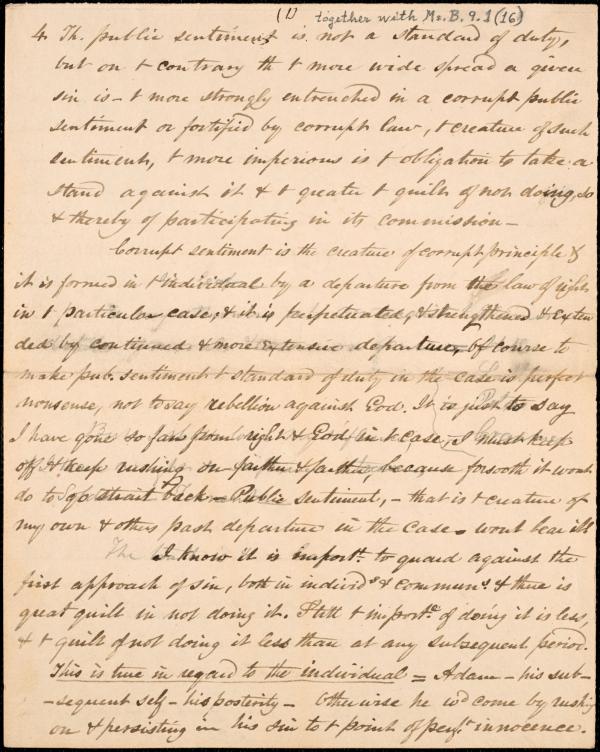 (1) together with Ms. B. 9. 1 (16)
4. Th. public sentiment is not a standard of duty,
but on t contrary th t more wide spread a given
sin is - t more strongly entrenched in a corrupt public
sentiment or fortified by corrupt law, t creature of such
sentiment, t more imperious is t obligation to take a
stand against it & t greater t guilt of not doing so
& thereby of participating in its commission -
Corrupt sentiment is the creature of corrupt principle &
it is formed in t individual by a departure from the law of right
in t particular case, & it is perpetuated, & strengthened & exten
ded by continued & more extensive departure, Of course to
make pub. sentiment t standard of duty in the case is perfect
nonsense, not to say rebellion against God. It is just to say
I have gone so far from right & God in t case, I must keep
off & keep rushing on farther & farther, because forsooth it wont
do to go strait back - Public sentiment, - that is t creature of
my own & others past departure in the case - wont bear it
The I know it is import. to guard against the
first approach of sin, both in individs & communs. & there is
great guilt in not doing it. Still t importe of doing it is less,
& t guilt of not doing it less than at any subsequent period.
This is true in regard to the individual = Adam - his sub-
-sequent self - his posterity - Otherwise he wd come by rushing
on & persisting in his sin to t point of perft innocence.